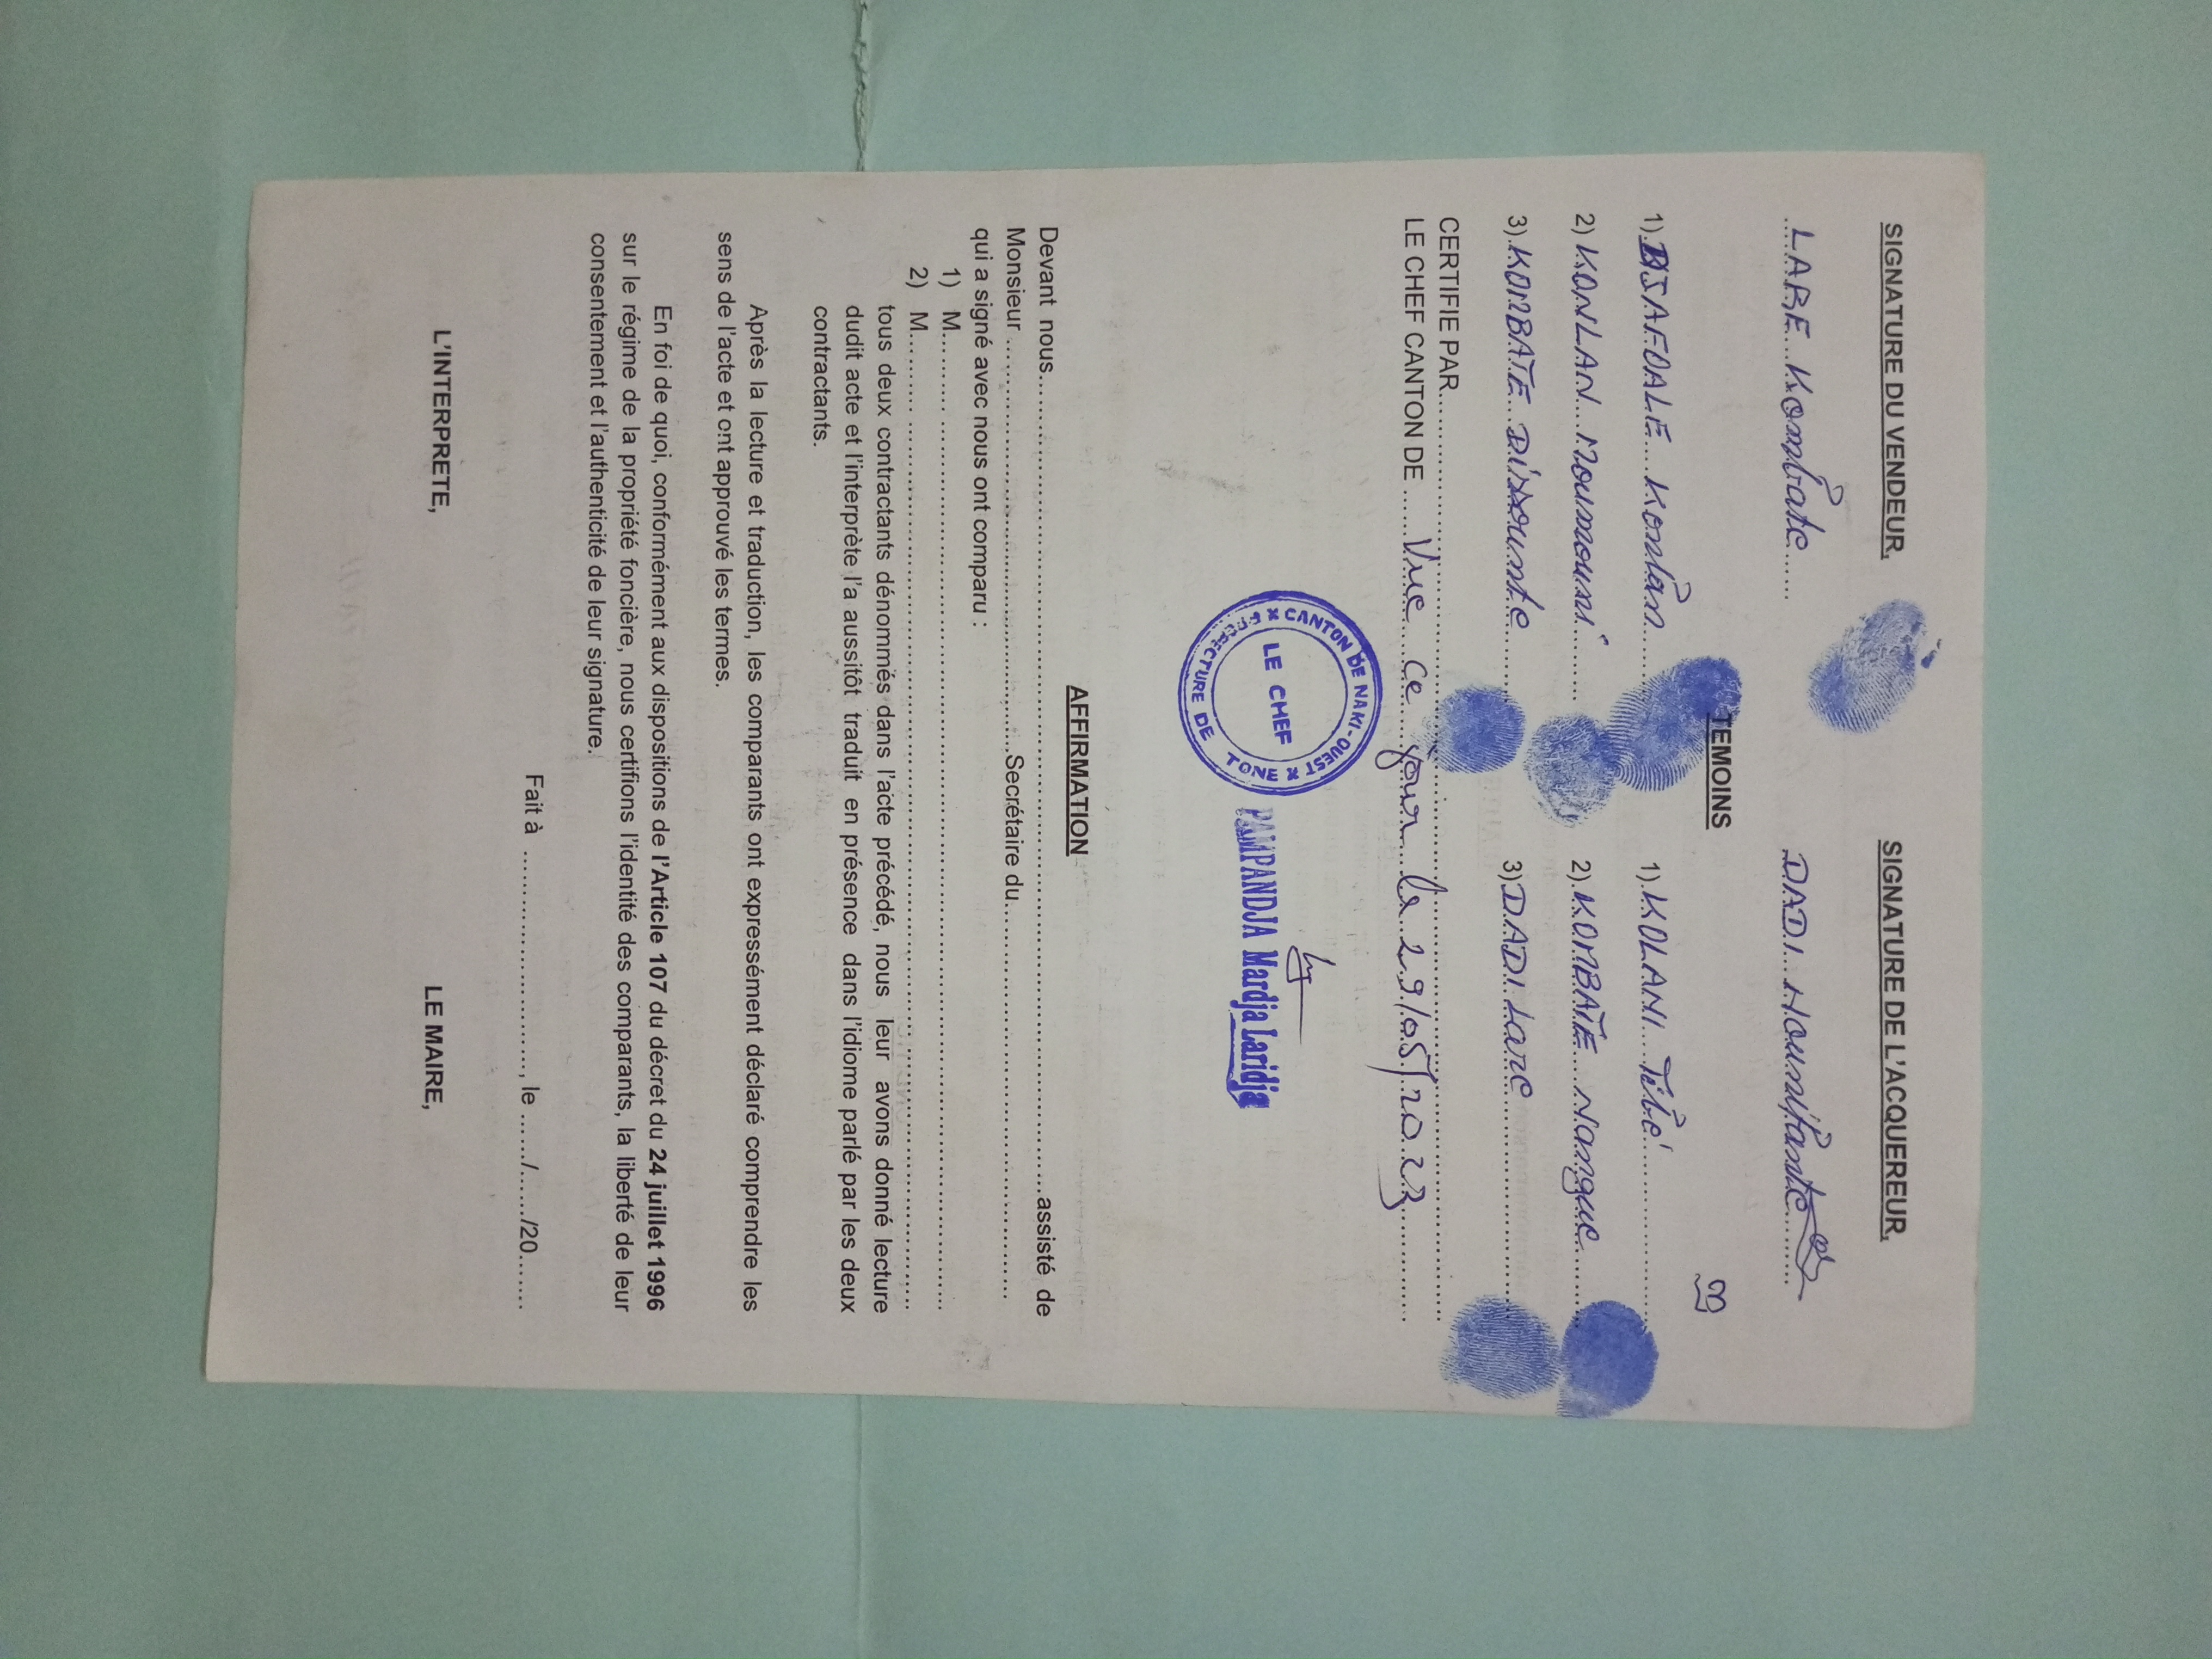 SIGNATURE DU VENDEUR, SIGNATURE DE L'ACQUEREUR,
LARE Kombate DADI Hounifante
TEMOINS
1) DJAFOALE Konlan 1) KOLANI Tibé
2) KONLAN Moumouni 2) KOMBATE Nangue
3) KOMBATE 3) DADI Lare
CERTIFIE PAR
LE CHEF CANTON DE Vue ce jour le 29/05/2023
CANTON DE NAKI-OUEST
PREFECTURE DE TONE
LE CHEF
PAMPANDJA Mardja Laridja
AFFIRMATION
Devant nous assisté de
Monsieur Secrétaire du
qui a signé avec nous ont comparu :
1) M
2) M
tous deux contractants dénommés dans l'acte précédé, nous leur avons donné lecture
dudit acte et l'interprète l'a aussitôt traduit en présence dans l'idiome parlé par les deux
contractants.
Après la lecture et traduction, les comparants ont expressément déclaré comprendre les
sens de l'acte et ont approuvé les termes.
En foi de quoi, conformément aux dispositions de l'Article 107 du décret du 24 juillet 1996
sur le régime de la propriété foncière, nous certifions l'identité des comparants, la liberté de leur
consentement et l'authenticité de leur signature.
Fait à ........................, le ....../....../20......
L'INTERPRETE, LE MAIRE,